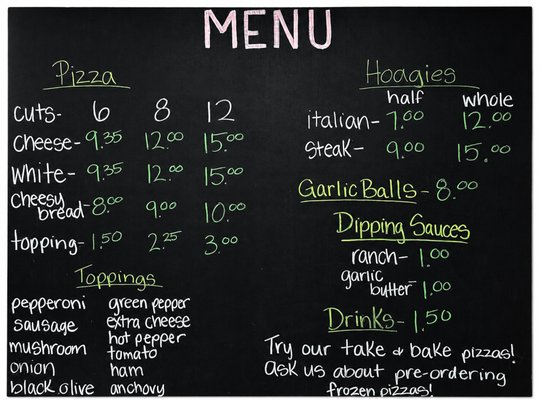 MENU
Pizza
cuts- 6 8 12
cheese- 9.35 12.00 15.00
White- 9.35 12.00 15.00
Cheesy
bread- 8.00 9.00 10.00
topping- 1.50 2.25 3.00
Toppings
pepperoni green pepper
sausage extra cheese
mushroom hot pepper
onion tomato
black olive ham
anchovy
Hoagies
half whole
italian- 7.00 12.00
steak- 9.00 15.00
Garlic Balls - 8.00
Dipping Sauces
ranch- 1.00
garlic
butter- 1.00
Drinks- 1.50
Try our take & bake pizzas!
ask us about pre-ordering
frozen pizzas!